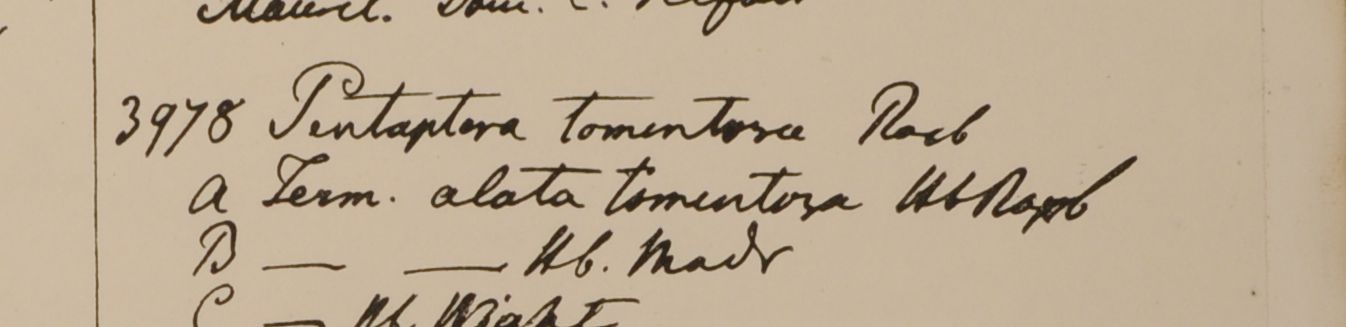 3978 Pentaptera tomentosa Roxb
A Term. alata tomentosa Hb Roxb
B — — Hb. Madr
C — Hb. Wight